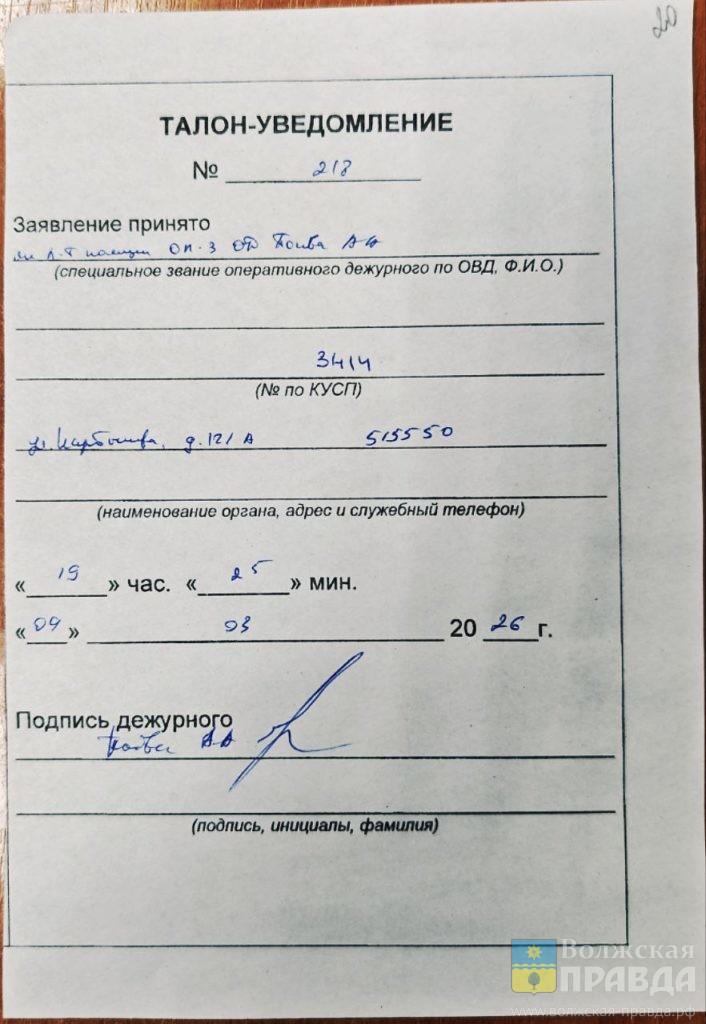 20
ТАЛОН-УВЕДОМЛЕНИЕ
№ 218
Заявление принято
л-т полиции ОП-3 А А
(специальное звание оперативного дежурного по ОВД, Ф.И.О.)
3414
(№ по КУСП)
ул. Карбышева, д. 121 А 515550
(наименование органа, адрес и служебный телефон)
«19» час. «25» мин.
«09» 03 2026 г.
Подпись дежурного
А А
(подпись, инициалы, фамилия)
Волжская
ПРАВДА
www.волжская-правда.рф